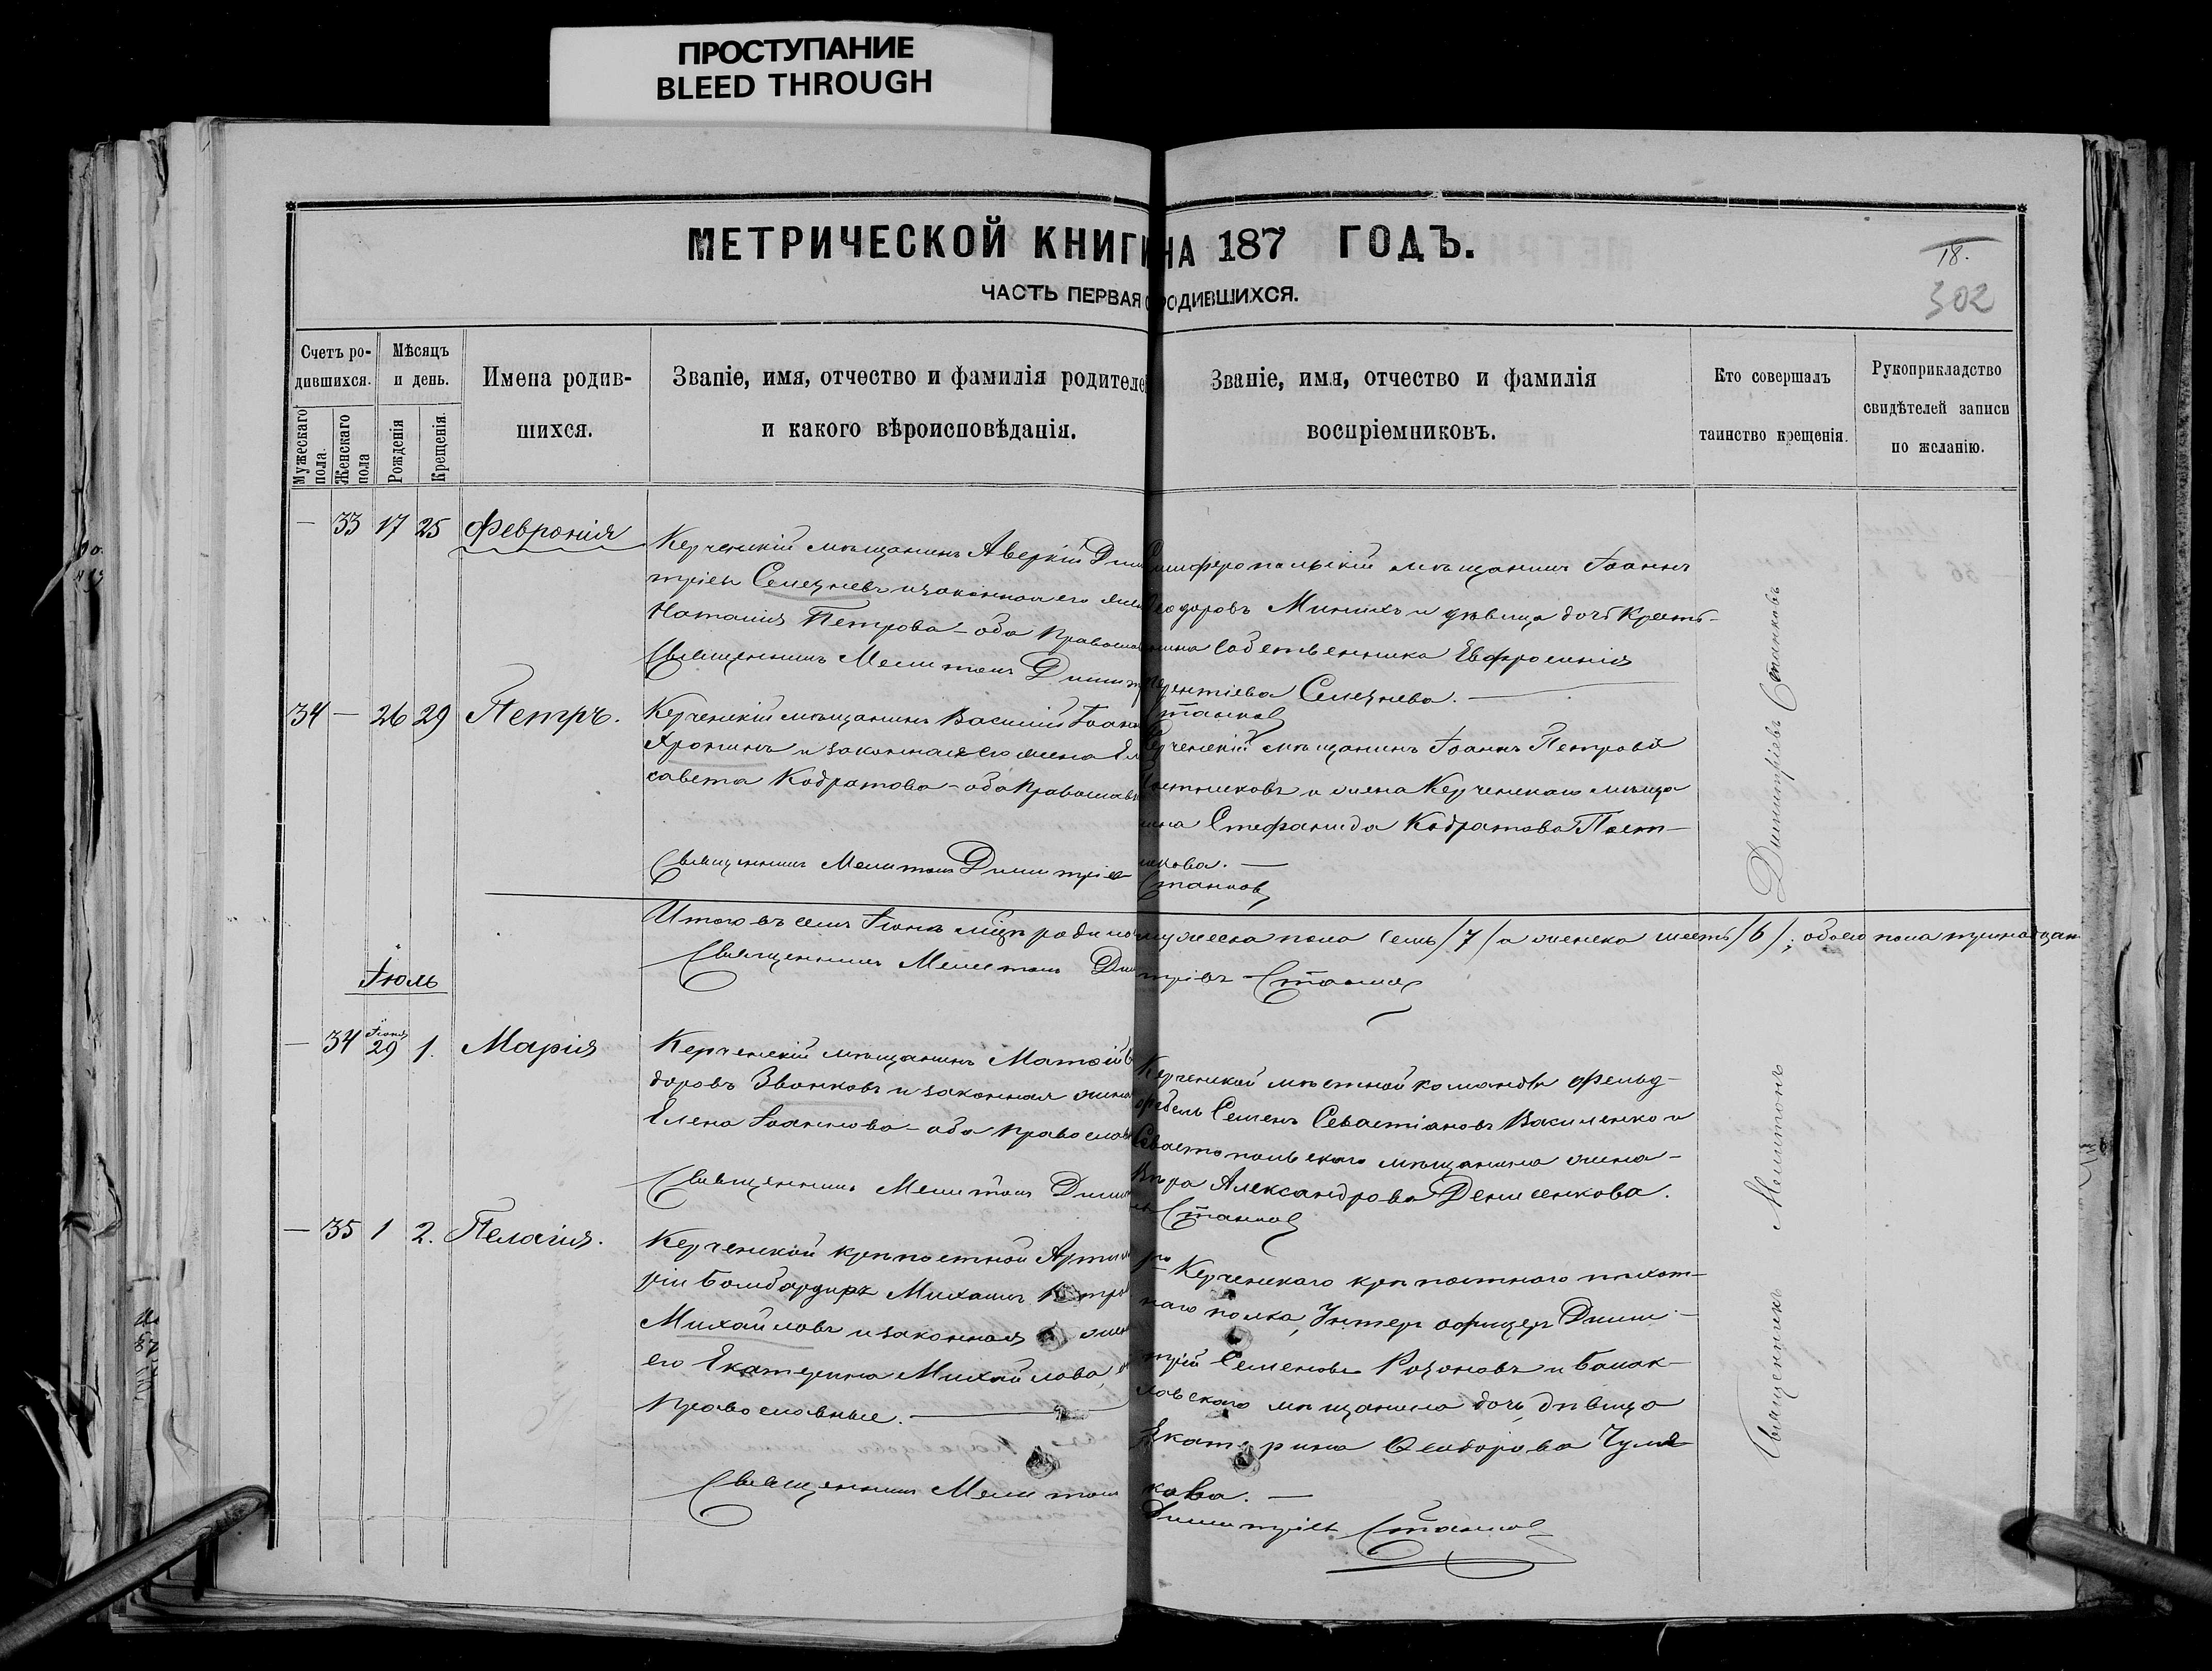 ПРОСТУПАНИЕ
BLEED THROUGH
МЕТРИЧЕСКОЙ КНИГИ НА 187 ГОДЪ.
ЧАСТЬ ПЕРВАЯ О РОДИВШИХСЯ.
18.
302
Счетъ родившихся.
Мужескаго пола.
Женскаго пола
Мѣсяцъ и день.
Рожденія
Крещенія.
Имена родив-
шихся.
Званіе, имя, отчество и фамилія родителе
и какого вѣроисповѣданія.
Званіе, имя, отчество и фамилія
воспріемниковъ.
Кто совершалъ
таинство крещенія.
Рукоприкладство
свидѣтелей записи
по желанію.
— 33 17 25 Феврония
Керченскій мѣщанинъ Аверкій Дим
тріевъ Селезневъ и законная его жен
Наталия Петрова - оба православ
Священникъ Мелитонъ Димитр
Симферопольскій мѣщанинъ Іоаннъ
Ѳеодоровъ Минихъ и дѣвица дочь Крестья-
нина Собственника Евфросинія
Терентіева Селезнева. —
Станков
34 — 26 29 Петръ.
Керченскій мѣщанинъ Василий Іоан
Хронинъ и законная его жена Ели
савета Кодратова - оба Православн
Священникъ Мелитон Димитріев
Керченскій мѣщанинъ Іоаннъ Петровъ
и жена Керченскаго мѣща
нина Стефанида Кодратова Пост-
никова. —
Станков
Итого въ семъ Іюнѣ мѣц родилось мужеска пола семь /7/ а женска шесть /6/; обоего пола тринадцан
Священникъ Мелитонъ Димитріевъ Станков
Іюль
— 34 Іюня 29 1. Марія
Керченскій мѣщанинъ Матѳій Ѳ
доровъ Звонковъ и законная жена
Елена Іоаннова - оба православн
Священникъ Мелитонъ Димит
Керченской мѣстной команды фельд-
фебель Семенъ Севастіановъ Василенко и
Севастопольскаго мѣщанина жена -
Вѣра Александрова Денисенкова.
Станков
— 35 1 2. Пелагия.
Керченской крѣпостной Артил
ріи Бомбардиръ Михаилъ Петро
Михайловъ и законная жен
его Екатерина Михайлова,
православные. —
Священникъ Мелитон
Керченскаго крѣпостного пѣхот-
наго полка, Унтеръ офицеръ Дими-
трій Семеновъ Розоновъ и Балак-
лавскаго мѣщанина дочь, дѣвица
Екатерина Ѳеодорова Чума
кова. —
Димитріевъ Станков
Священникъ Мелитонъ Димитріевъ Станковъ